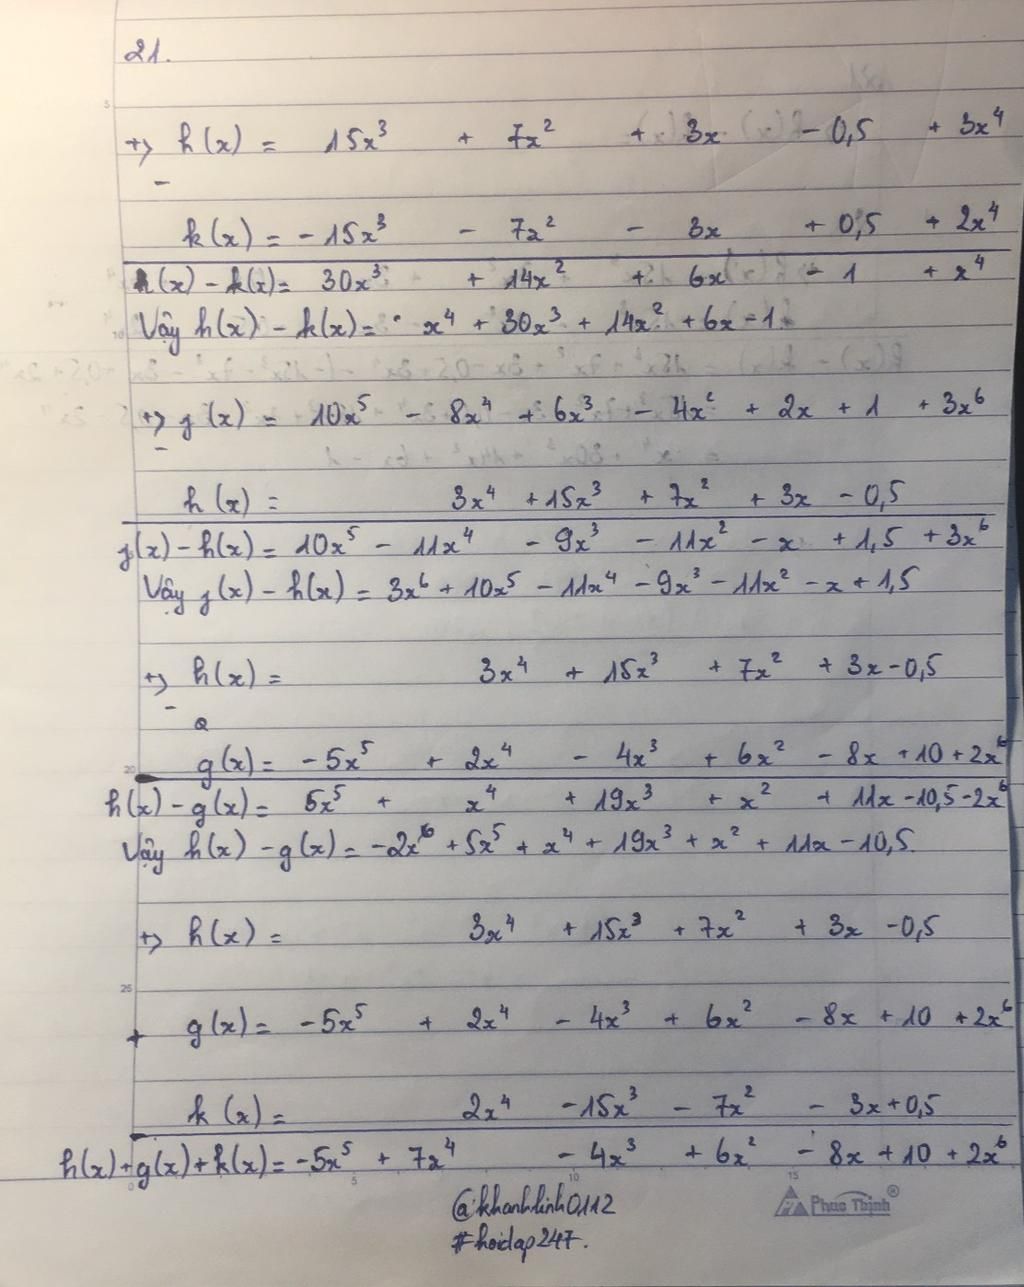 21.
+> h(x) = 15x³ + 7x² + 3x - 0,5 + 3x⁴
-
k(x) = - 15x³ - 7x² - 3x + 0,5 + 2x⁴
h(x) - k(x) = 30x³ + 14x² + 6x - 1 + x⁴
Vậy h(x) - k(x) = x⁴ + 30x³ + 14x² + 6x - 1.
+> f(x) = 10x⁵ - 8x⁴ + 6x³ - 4x² + 2x + 1 + 3x⁶
-
h(x) = 3x⁴ + 15x³ + 7x² + 3x - 0,5
f(x) - h(x) = 10x⁵ - 11x⁴ - 9x³ - 11x² - x + 1,5 + 3x⁶
Vậy f(x) - h(x) = 3x⁶ + 10x⁵ - 11x⁴ - 9x³ - 11x² - x + 1,5
+> h(x) = 3x⁴ + 15x³ + 7x² + 3x - 0,5
-
g(x) = - 5x⁵ + 2x⁴ - 4x³ + 6x² - 8x + 10 + 2x⁶
h(x) - g(x) = 5x⁵ + x⁴ + 19x³ + x² + 11x - 10,5 - 2x⁶
Vậy h(x) - g(x) = - 2x⁶ + 5x⁵ + x⁴ + 19x³ + x² + 11x - 10,5.
+> h(x) = 3x⁴ + 15x³ + 7x² + 3x - 0,5
+ g(x) = - 5x⁵ + 2x⁴ - 4x³ + 6x² - 8x + 10 + 2x⁶
k(x) = 2x⁴ - 15x³ - 7x² - 3x + 0,5
h(x) + g(x) + k(x) = - 5x⁵ + 7x⁴ - 4x³ + 6x² - 8x + 10 + 2x⁶
@khanhlinh0112
Phuc Thinh®
#hoidap247.